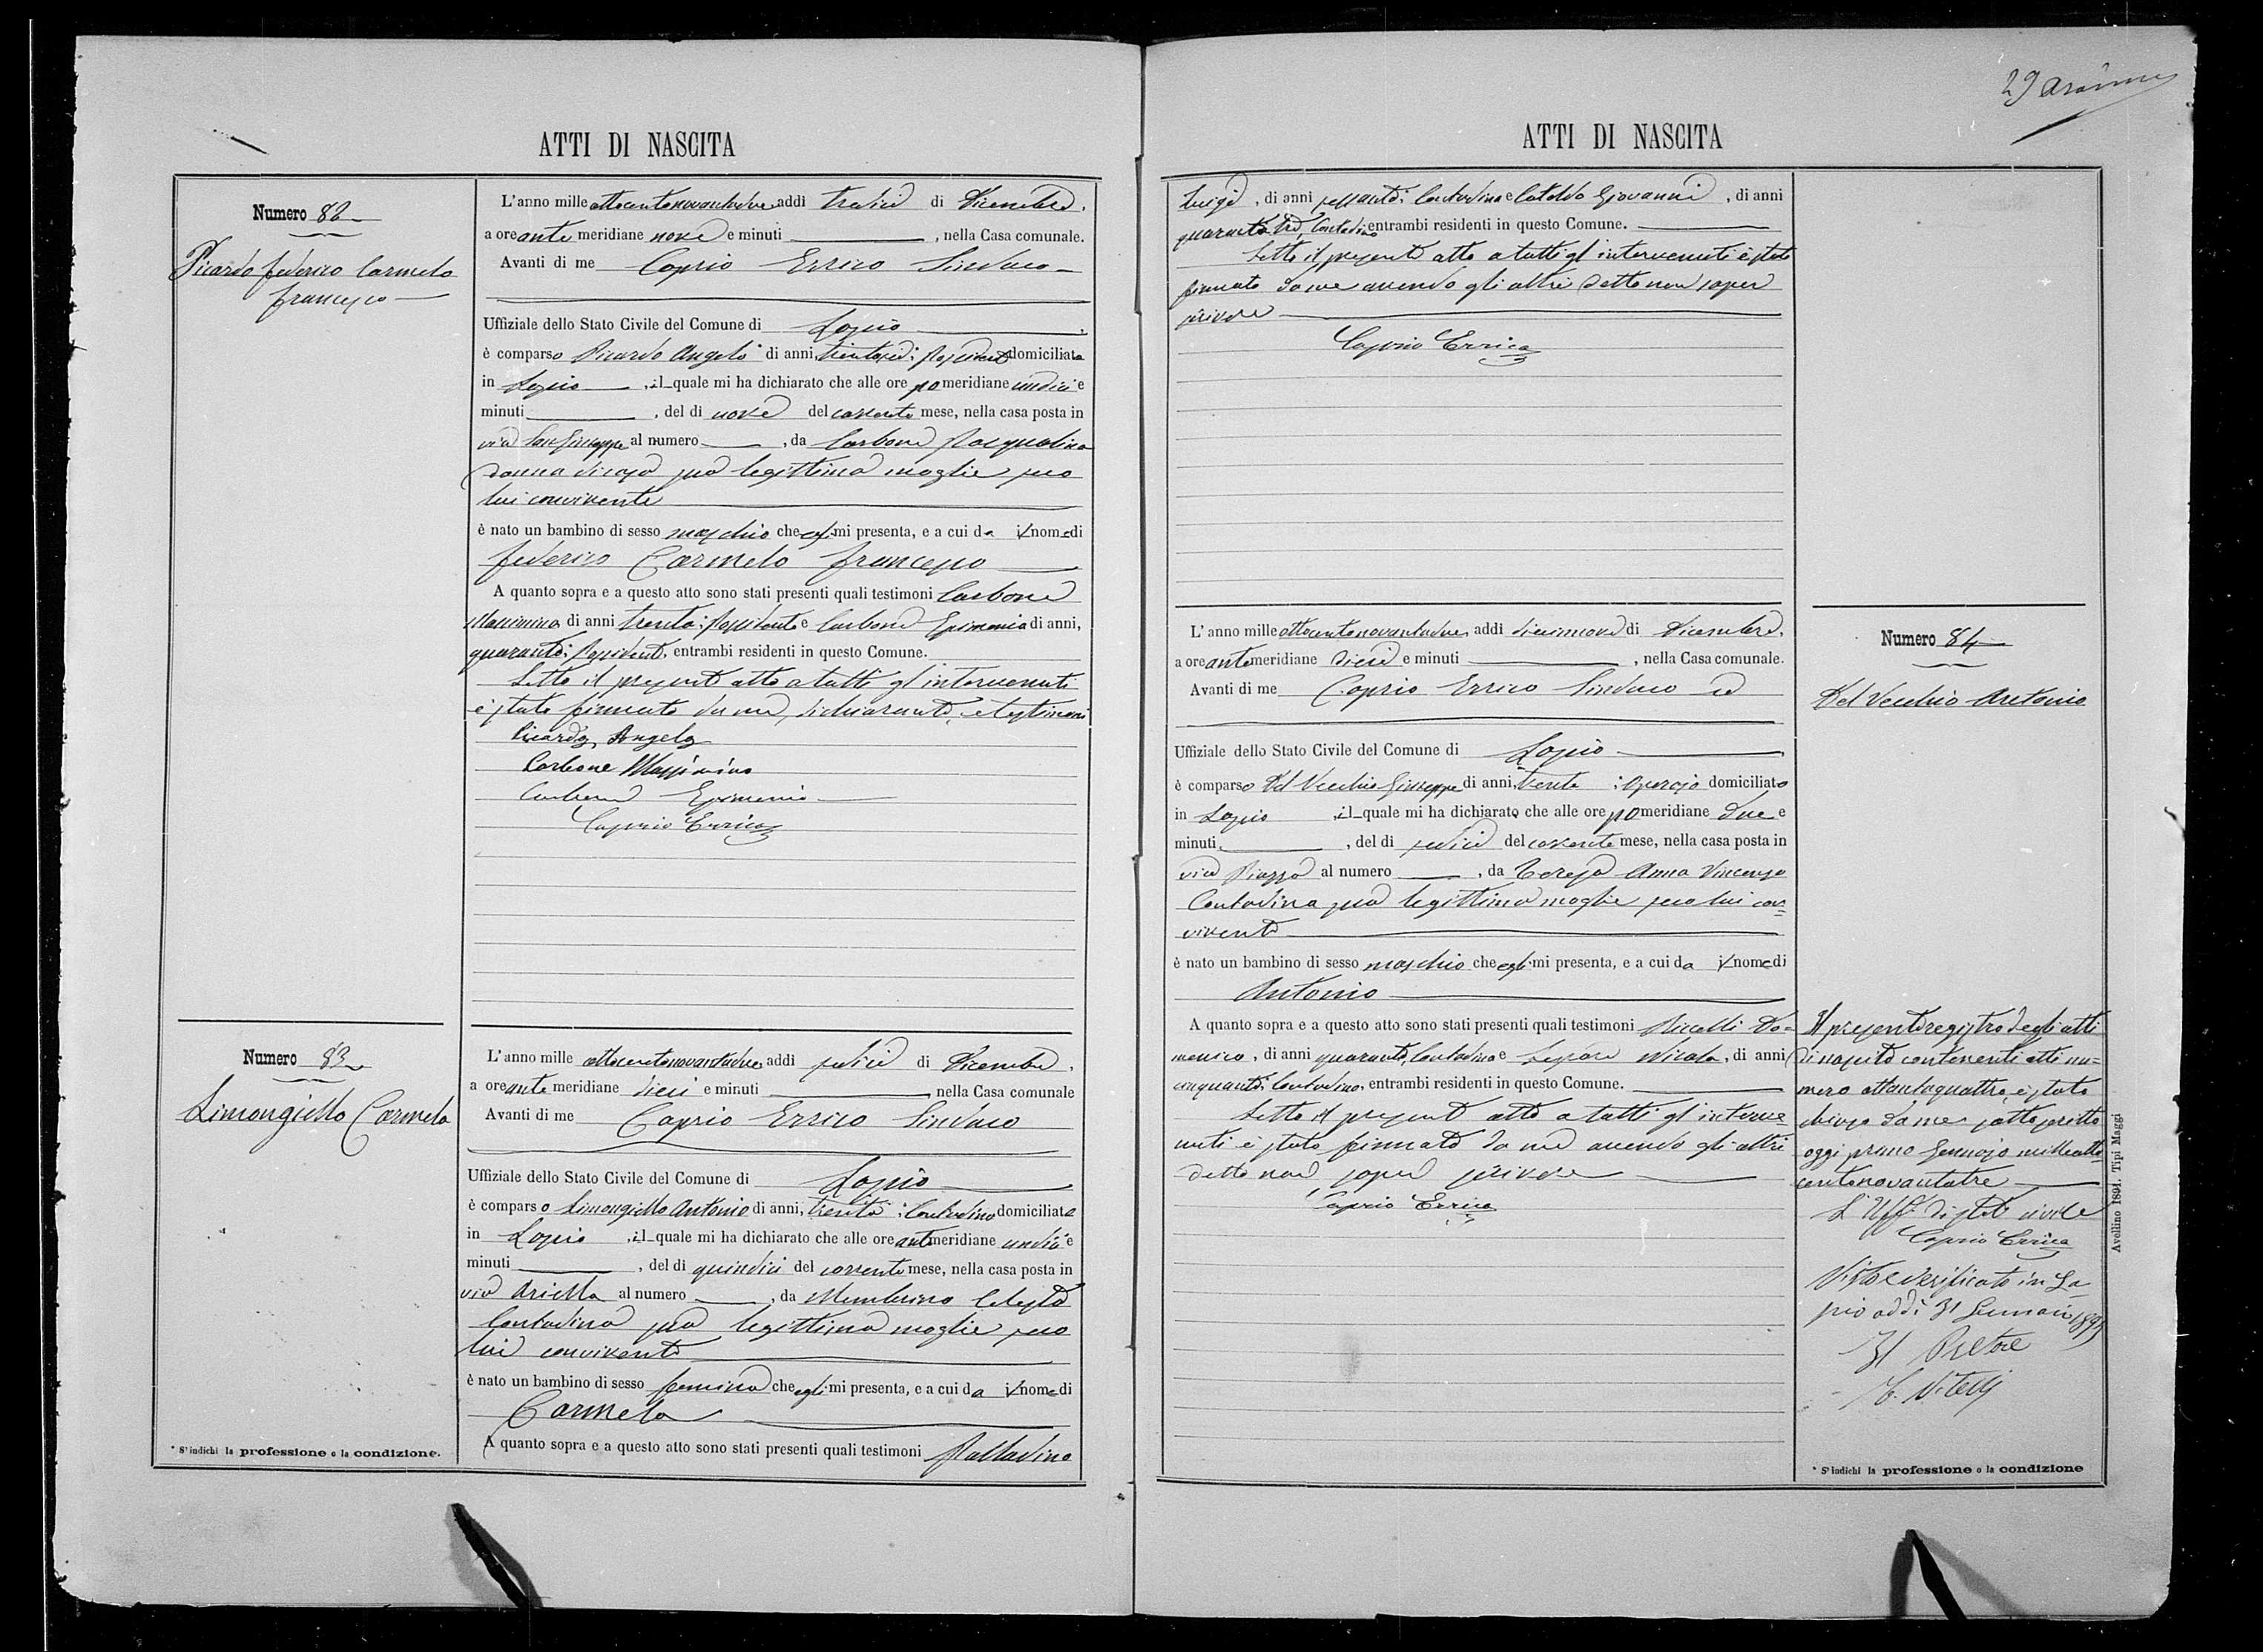 ATTI DI NASCITA
Numero 82
Picardo Federico Carmelo
Francesco
L'anno mille ottocentonovantadue, addì tredici di Dicembre,
a ore ante meridiane nove e minuti , nella Casa comunale.
Avanti di me Caprio Errico Sindaco
Uffiziale dello Stato Civile del Comune di Lapio ,
è comparso Picardo Angelo di anni, trentasei; Possidente domiciliato
in Lapio , il quale mi ha dichiarato che alle ore pomeridiane undici e
minuti , del dì nove del corrente mese, nella casa posta in
via San Giuseppe al numero , da Carbone Pasqualina
donna di casa sua legittima moglie seco
lui convivente
è nato un bambino di sesso maschio che egli mi presenta, e a cui da il nome di
Federico Carmelo Francesco
A quanto sopra e a questo atto sono stati presenti quali testimoni Carbone
Massimino di anni trenta; Possidente e Carbone Epimenio di anni,
quaranta; Possidente, entrambi residenti in questo Comune.
Letto il presente atto a tutti gl'intervenuti
è stato firmato da me, dichiarante, e testimoni
Picardo Angelo
Carbone Massimino
Carbone Epimenio
Caprio Errico
Numero 83
Limongiello Carmela
L'anno mille ottocentonovantadue, addì sedici di Dicembre,
a ore ante meridiane dieci e minuti , nella Casa comunale
Avanti di me Caprio Errico Sindaco
Uffiziale dello Stato Civile del Comune di Lapio
è comparso Limongiello Antonio di anni, trenta; Contadino domiciliato
in Lapio , il quale mi ha dichiarato che alle ore antimeridiane undici e
minuti , del dì quindici del corrente mese, nella casa posta in
via Ariella al numero , da Memberino Celesta
Contadina sua legittima moglie seco
lui convivente
è nato un bambino di sesso femina che egli mi presenta, e a cui da il nome di
Carmela
A quanto sopra e a questo atto sono stati presenti quali testimoni Palladino
* S'indichi la professione o la condizione.
29
ATTI DI NASCITA
Luigi , di anni sessanta; Contadino e Cataldo Giovanni , di anni
quarantatre, Contadino entrambi residenti in questo Comune.
Letto il presente atto a tutti gl'intervenuti è stato
firmato da me avendo gli altri detto non saper
scrivere
Caprio Errico
Numero 84
Del Vecchio Antonio
L'anno mille ottocentonovantadue, addì diciannove di Dicembre,
a ore antemeridiane dieci e minuti , nella Casa comunale.
Avanti di me Caprio Errico Sindaco
Uffiziale dello Stato Civile del Comune di Lapio
è comparso Del Vecchio Giuseppe di anni, trenta ; Operajo domiciliato
in Lapio , il quale mi ha dichiarato che alle ore pomeridiane due e
minuti , del dì sedici del corrente mese, nella casa posta in
via Piazza al numero , da Teresa Anna Vincenza
Contadina sua legittima moglie seco lui con=
vivente
è nato un bambino di sesso maschio che egli mi presenta, e a cui da il nome di
Antonio
A quanto sopra e a questo atto sono stati presenti quali testimoni Piccolli Do=
menico, di anni quaranta, Contadino e Lepore Nicola, di anni
cinquanta; Contadino, entrambi residenti in questo Comune.
Letto il presente atto a tutti gl'interve=
nuti è stato firmato da me avendo gli altri
detto non saper scrivere
Caprio Errico
Il presente registro degli atti
di nascita contenenti atti nu=
mero ottantaquattro, è stato
chiuso da me sottoscritto
oggi primo Gennajo milleotto=
centonovantatre
L'Uff. di stato civile
Caprio Errico
Visto e verificato in La
pio addì 31 Gennaio 1893
Il Pretore
Avellino 1891. Tipi Maggi
* S'indichi la professione o la condizione